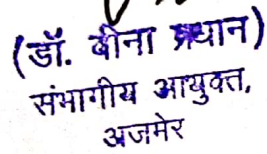 (डॉ. बीना प्रधान)
संभागीय आयुक्त,
अजमेर